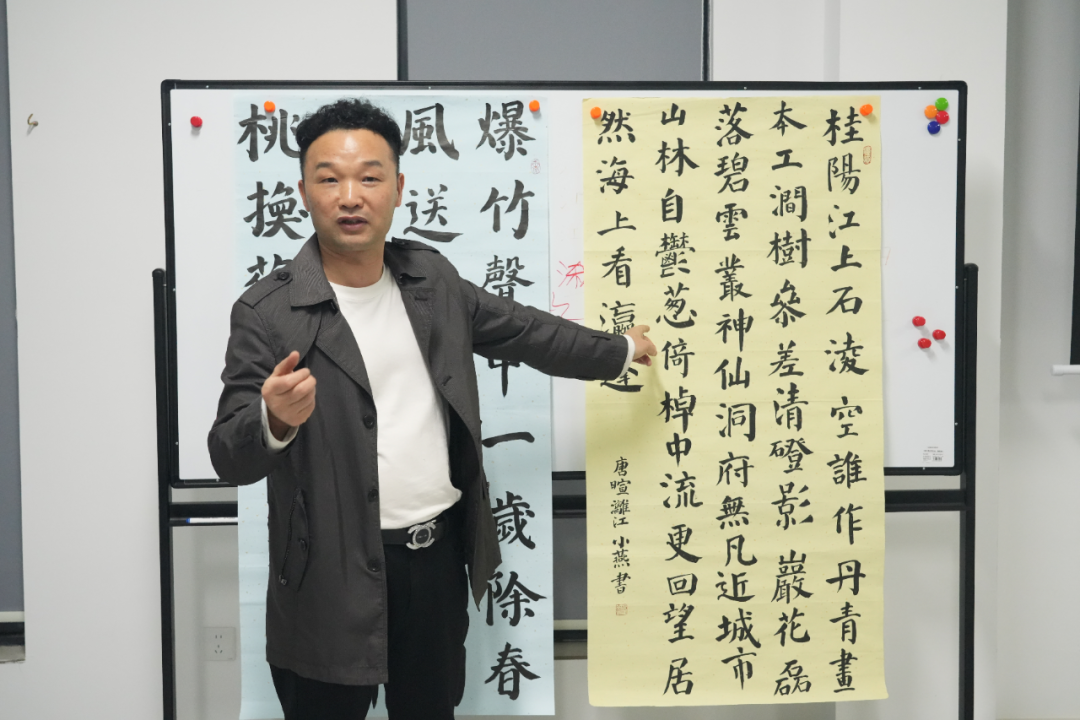 桂陽江上石淩空誰作丹青畫
本工澗樹參差清磴影巖花磊
落碧雲叢神仙洞府無凡近城市
山林自鬱葱倚棹中流更回望居
然海上看瀛
唐暄灕江小燕書
爆竹聲中一歲除春
風送
桃換